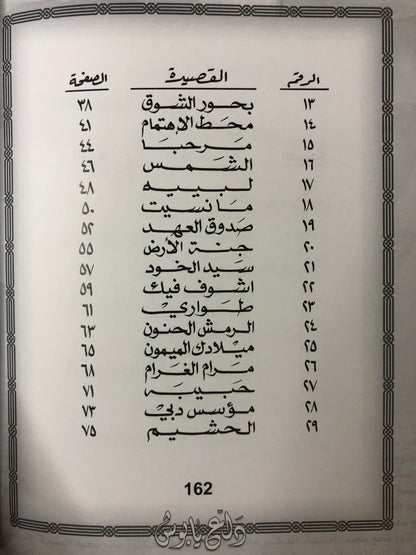 الرقم القصيدة الصفحة
١٣ بحور الشوق ٣٨
١٤ محط الإهتمام ٤١
١٥ مرحبا ٤٤
١٦ الشمس ٤٦
١٧ لبييه ٤٨
١٨ ما نسيت ٥٠
١٩ صدوق العهد ٥٢
٢٠ جنة الأرض ٥٥
٢١ سيد الخود ٥٧
٢٢ اشوف فيك ٥٩
٢٣ طواري ٦١
٢٤ الرمش الحنون ٦٣
٢٥ ميلادك الميمون ٦٥
٢٦ مرام الغرام ٦٨
٢٧ حبيبه ٧١
٢٨ مؤسس دبي ٧٣
٢٩ الحشيم ٧٥
162